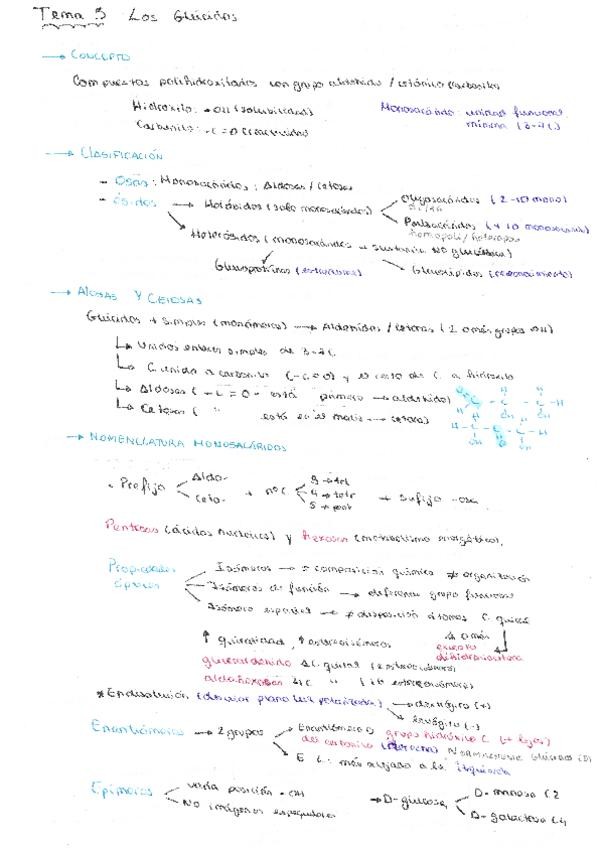 Tema 3 Los Glúcidos
→ CONCEPTO
Compuestos polihidroxilados con grupo aldehído / cetónico (carbonilo
Hidroxilo: -OH (solubilidad)
Monosacárido: unidad funcional
Carbonilo: -C=O (reactividad)
mínima (3-7C)
→ CLASIFICACIÓN
- Osas: Monosacáridos: Aldosas / Cetosas
- Ósidos → Holósidos (solo monosacáridos)
Oligosacáridos (2-10 mono)
Polisacáridos (+10 monosacáridos)
homopoli / heteropoli
Heterósidos (monosacáridos + sustancia NO glucídica)
Glucoproteínas (estructural)
Glucolípidos (reconocimiento)
→ ALDOSAS Y CETOSAS
Glúcidos + simples (monómeros) → Aldehídos / cetonas (2 o más grupos OH)
↳ Unidos enlaces simples de 3-7C
↳ C unido a carbonilo (-C=O) y el resto de C a hidroxilo
↳ Aldosas (-C=O- está primero → aldehído)
↳ Cetosas ( " está en el medio → cetona)
→ NOMENCLATURA MONOSACÁRIDOS
· Prefijo
Aldo-
Ceto-
+ nº C
3 → tri
4 → tetr
5 → pent
+ sufijo -osa
Pentosas (ácidos nucleicos) y hexosas (metabolismo energético).
Propiedades ópticas
Isómeros → = composición química ≠ organización
Isómeros de función → diferente grupo funcional
Isómero espacial → ≠ disposición átomos C. quiral
1 o más
excepto
dihidroxiacetona
↑ quiralidad, ↑ estereoisómeros
gliceraldehído 1C quiral (2 estereoisómeros)
aldohexosas 4C " (16 estereoisómeros)
* En disolución (desviar plano luz polarizada)
dextrógiro (+)
levógiro (-)
Enantiómeros → 2 grupos
Enantiómero D grupo hidroxilo C (+ lejos)
del carbonilo (derecha) Normalmente glúcidos (D)
E L: más alejado a la izquierda
Epímeros
varía posición -OH
No imágenes especulares
→ D-glucosa
D-manosa C2
D-galactosa C4